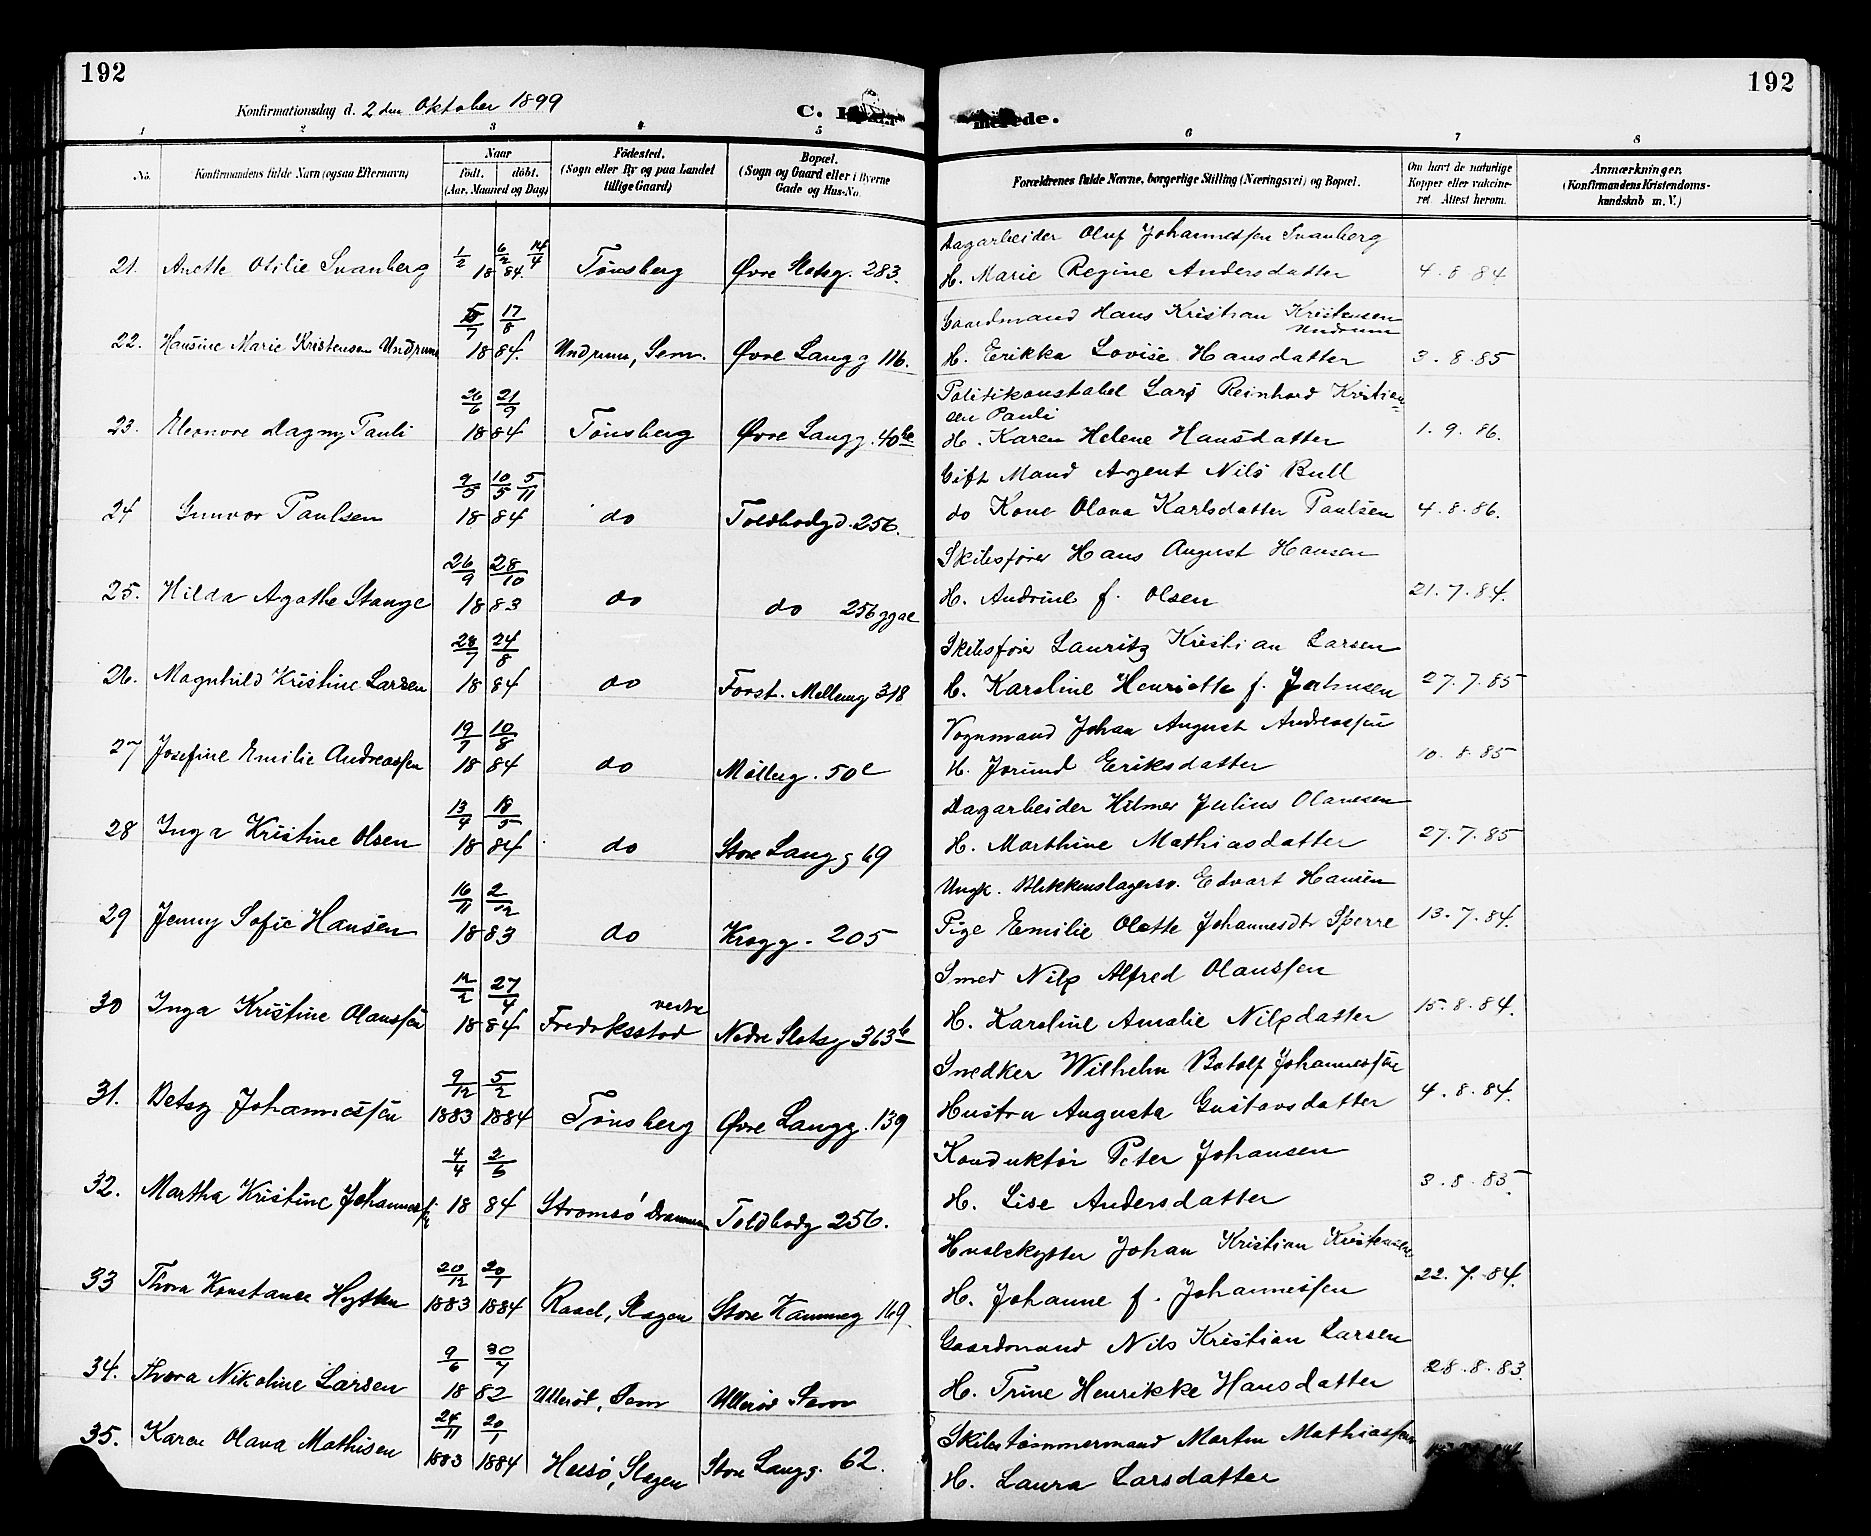 192
192
Konfirmationsdag d. 2 den Oktober 1899
C.
rede.
1 2 3 4 5 6 7 8
No.
Konfirmandens fulde Navn (ogsaa Efternavn)
Naar
født. döbt.
(Aar, Maaned og Dag)
Födested.
(Sogn eller By og paa Landet
tillige Gaard)
Bopæl.
(Sogn og Gaard eller i Byerne
Gade og Hus-No.
Forældrenes fulde Navne, borgerlige Stilling (Næringsvei) og Bopæl.
Om havt de naturlige
Kopper eller vaccine-
ret Attest herom.
Anmærkninger.
(Konfirmandens Kristendoms-
kundskab m. V.)
1/2 6/2 14/4 Dagarbeider Oluf Johannessen Svanberg
21. Anette Otilie Svanberg 18 84. Tönsberg Øvre Slotsg. 283. H. Marie Regine Andersdatter 4.8 84
5/7 17/8 Gaardmand Hans Kristian Kristensen
Undrum
22. Hansine Marie Kristensen Undrum 18 84. Undrum, Sem. Øvre Langg 116. H. Erikka Lovise Hansdatter 3.8.85
26/6 21/9 Politikonstabel Lars Reinhard Kristian-
sen Pauli
23. Eleonore Dagny Pauli 18 84 Tönsberg Øvre Langg. 40 be H. Karen Helene Hansdatter 1.9.86.
9/5 10/5 5/11 Gift Mand Agent Nils Bull
24 Gunvor Paulsen 18 84 do Toldbodgd. 256. do Kone Olava Karlsdatter Paulsen 4.8.86.
26/9 28/10 Skibsfører Hans August Hansen
25. Hilda Agathe Stange 18 83 do do 256 H. Andrine f. Olsen 21.7.84.
28/7 24/8 Skibsfører Lauritz Kristian Larsen
26. Magnhild Kristine Larsen 18 84 do Forst. Mellemg 318 H. Karoline Henriette f. 27.7.85
19/7 10/8 Vognmand Johan August Andreassen
27 Josefine Emilie Andreassen 18 84 do Mölleg. 50 e H. Jorund Eriksdatter 10.8.85
13/4 18/5 Dagarbeider Hilmer Julius Olausen
28 Inga Kristine Olsen 18 84 do Store Langg 69 H. Marthine Mathiasdatter 27.7.85
16/11 2/12 Ungk. Blikkenslagersv. Edvart Hansen
29 Jenny Sofie Hansen 18 83 do Krogg. 205 Pige Emilie Olette Johannesdtr Sperre 13.7.84.
12/2 27/4 Smed Nils Alfred Olaussen
30 Inga Kristine Olaussen 18 84 Fredriksstad vestre Nedre Slotsg 363 b H. Karoline Amalie Nilsdatter 15.8.84.
9/12 5/2 Snedker Wilhelm Botolf Johannessen
31. Betsy Johannessen 1883 1884 Tönsberg Øvre Langg. 139 Hustru Augusta Gustavsdatter 4.8.84.
4/4 2/6 Konduktör Peter Johansen
32. Martha Kristine Johannessen 18 84 Strömsö Drammen Toldbodg 256. H. Lise Andersdatter 3.8.85.
20/12 20/1 Hvalskytter Johan Kristian Kristensen
33 Thora Konstance Hytten 1883 1884 Raael, Slagen Store Kammeg 169 H. Johanne f. Johannessen 22.7.84.
9/6 30/7 Gaardmand Nils Kristian Larsen
34. Thora Nikoline Larsen 18 82 Ulleröd, Sem Ulleröd Sem H. Trine Henrikke Hansdatter 28.8.83.
24/11 20/1 Skibstömmermand Martin Mathiassen
35. Karen Olava Mathisen 1883 1884 Husö, Slagen Store Langg. 62. H. Laura Larsdatter